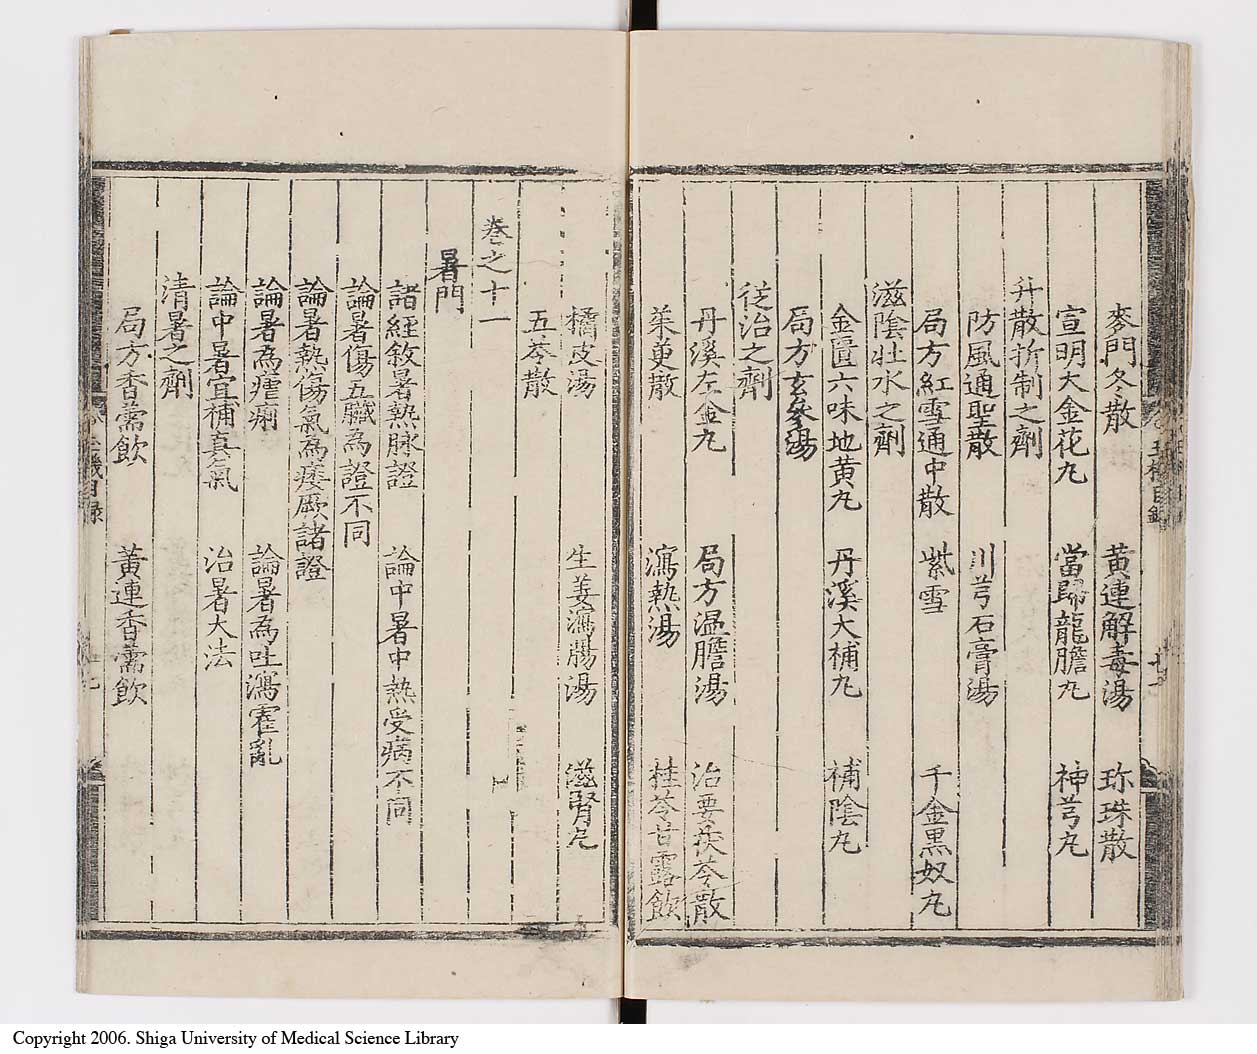 麥門冬散 黃連解毒湯 珎珠散
宣明大金花丸 當歸龍膽丸 神芎丸
升散折制之劑
防風通聖散 川芎石膏湯
局方紅雪通中散 紫雪 千金黒奴丸
滋陰壯水之劑
金匱六味地黃丸 丹溪大補丸 補陰丸
局方玄參湯
從治之劑
丹溪左金丸 局方温膽湯 治要茯苓散
茱萸散 瀉熱湯 桂苓甘露飲
橘皮湯 生姜瀉膓湯 滋腎丸
五苓散
卷之十一
暑門
諸經敘暑熱脉證 論中暑中熱受病不同
論暑傷五臟為證不同
論暑熱傷氣為痿厥諸證
論暑為瘧痢 論暑為吐瀉霍亂
論中暑宜補真氣 治暑大法
清暑之劑
局方香薷飲 黃連香薷飲
Copyright 2006. Shiga University of Medical Science Library